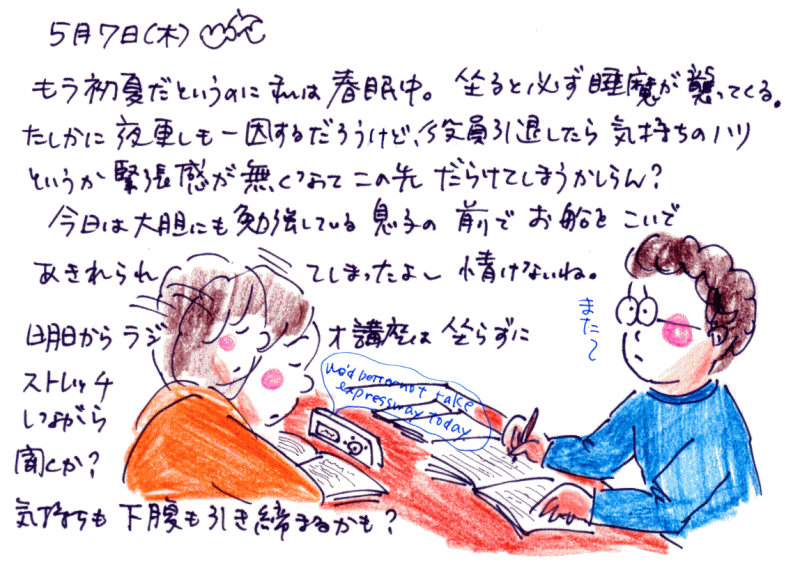 5月7日(木)
もう初夏だというのに私は春眠中。坐ると必ず睡魔が襲ってくる。
たしかに夜更しも一因するだろうけど、役員引退したら気持ちのハリ
というか緊張感が無くなってこの先だらけてしまうかしらん?
今日は大胆にも勉強している息子の前でお船をこいで
あきれられてしまったよー情けないね。
明日からラジオ講座は坐らずに
ストレッチ
しながら
聞くか?
気持ちも下腹も引き締まるかも?
また〜
We'd better not take
expressway today